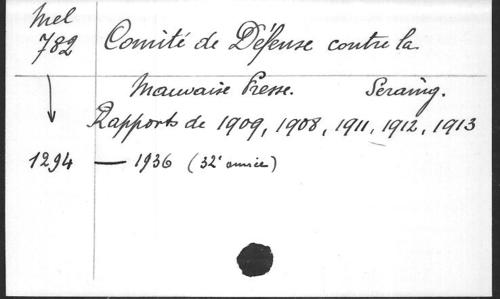 Mel
782 Comité de Défense contre la
Mauvaise Presse. Seraing.
Rapports de 1909, 1908, 1911, 1912, 1913
1294 — 1936 (32e année)